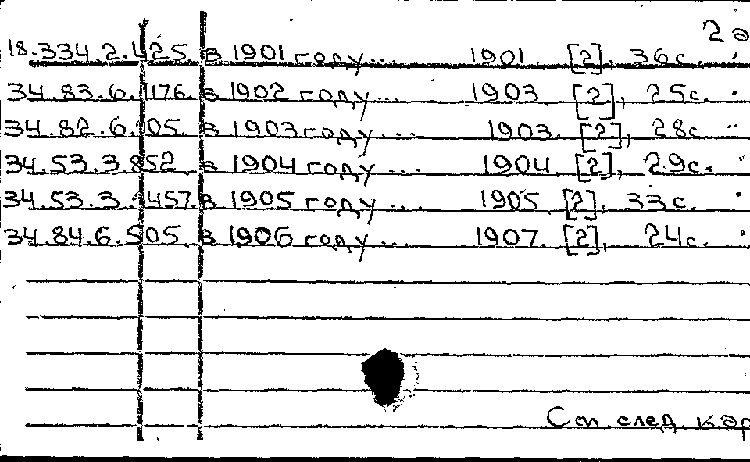 2 э
18.334.2.425 в 1901 году... 1901 [2], 36с.
34.83.6.176. в 1902 году 1903 [2], 25с.
34.82.6.505. в 1903 году... 1903. [2], 28с.
34.53.3.852 в 1904 году... 1904. [2], 29с.
34.53.3.457. в 1905 году... 1905. [2], 33с.
34.84.6.505 в 1906 году... 1907. [2], 24с.
См след кар